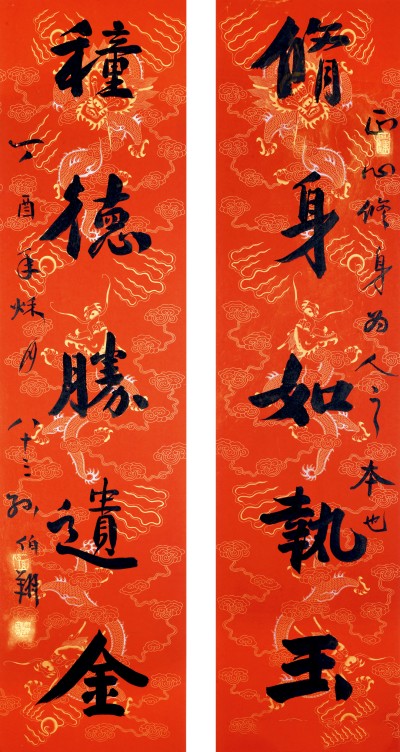 正心修身为人之本也
脩身如執玉
種德勝遺金
丁酉年秋月 八十三 孙伯翔